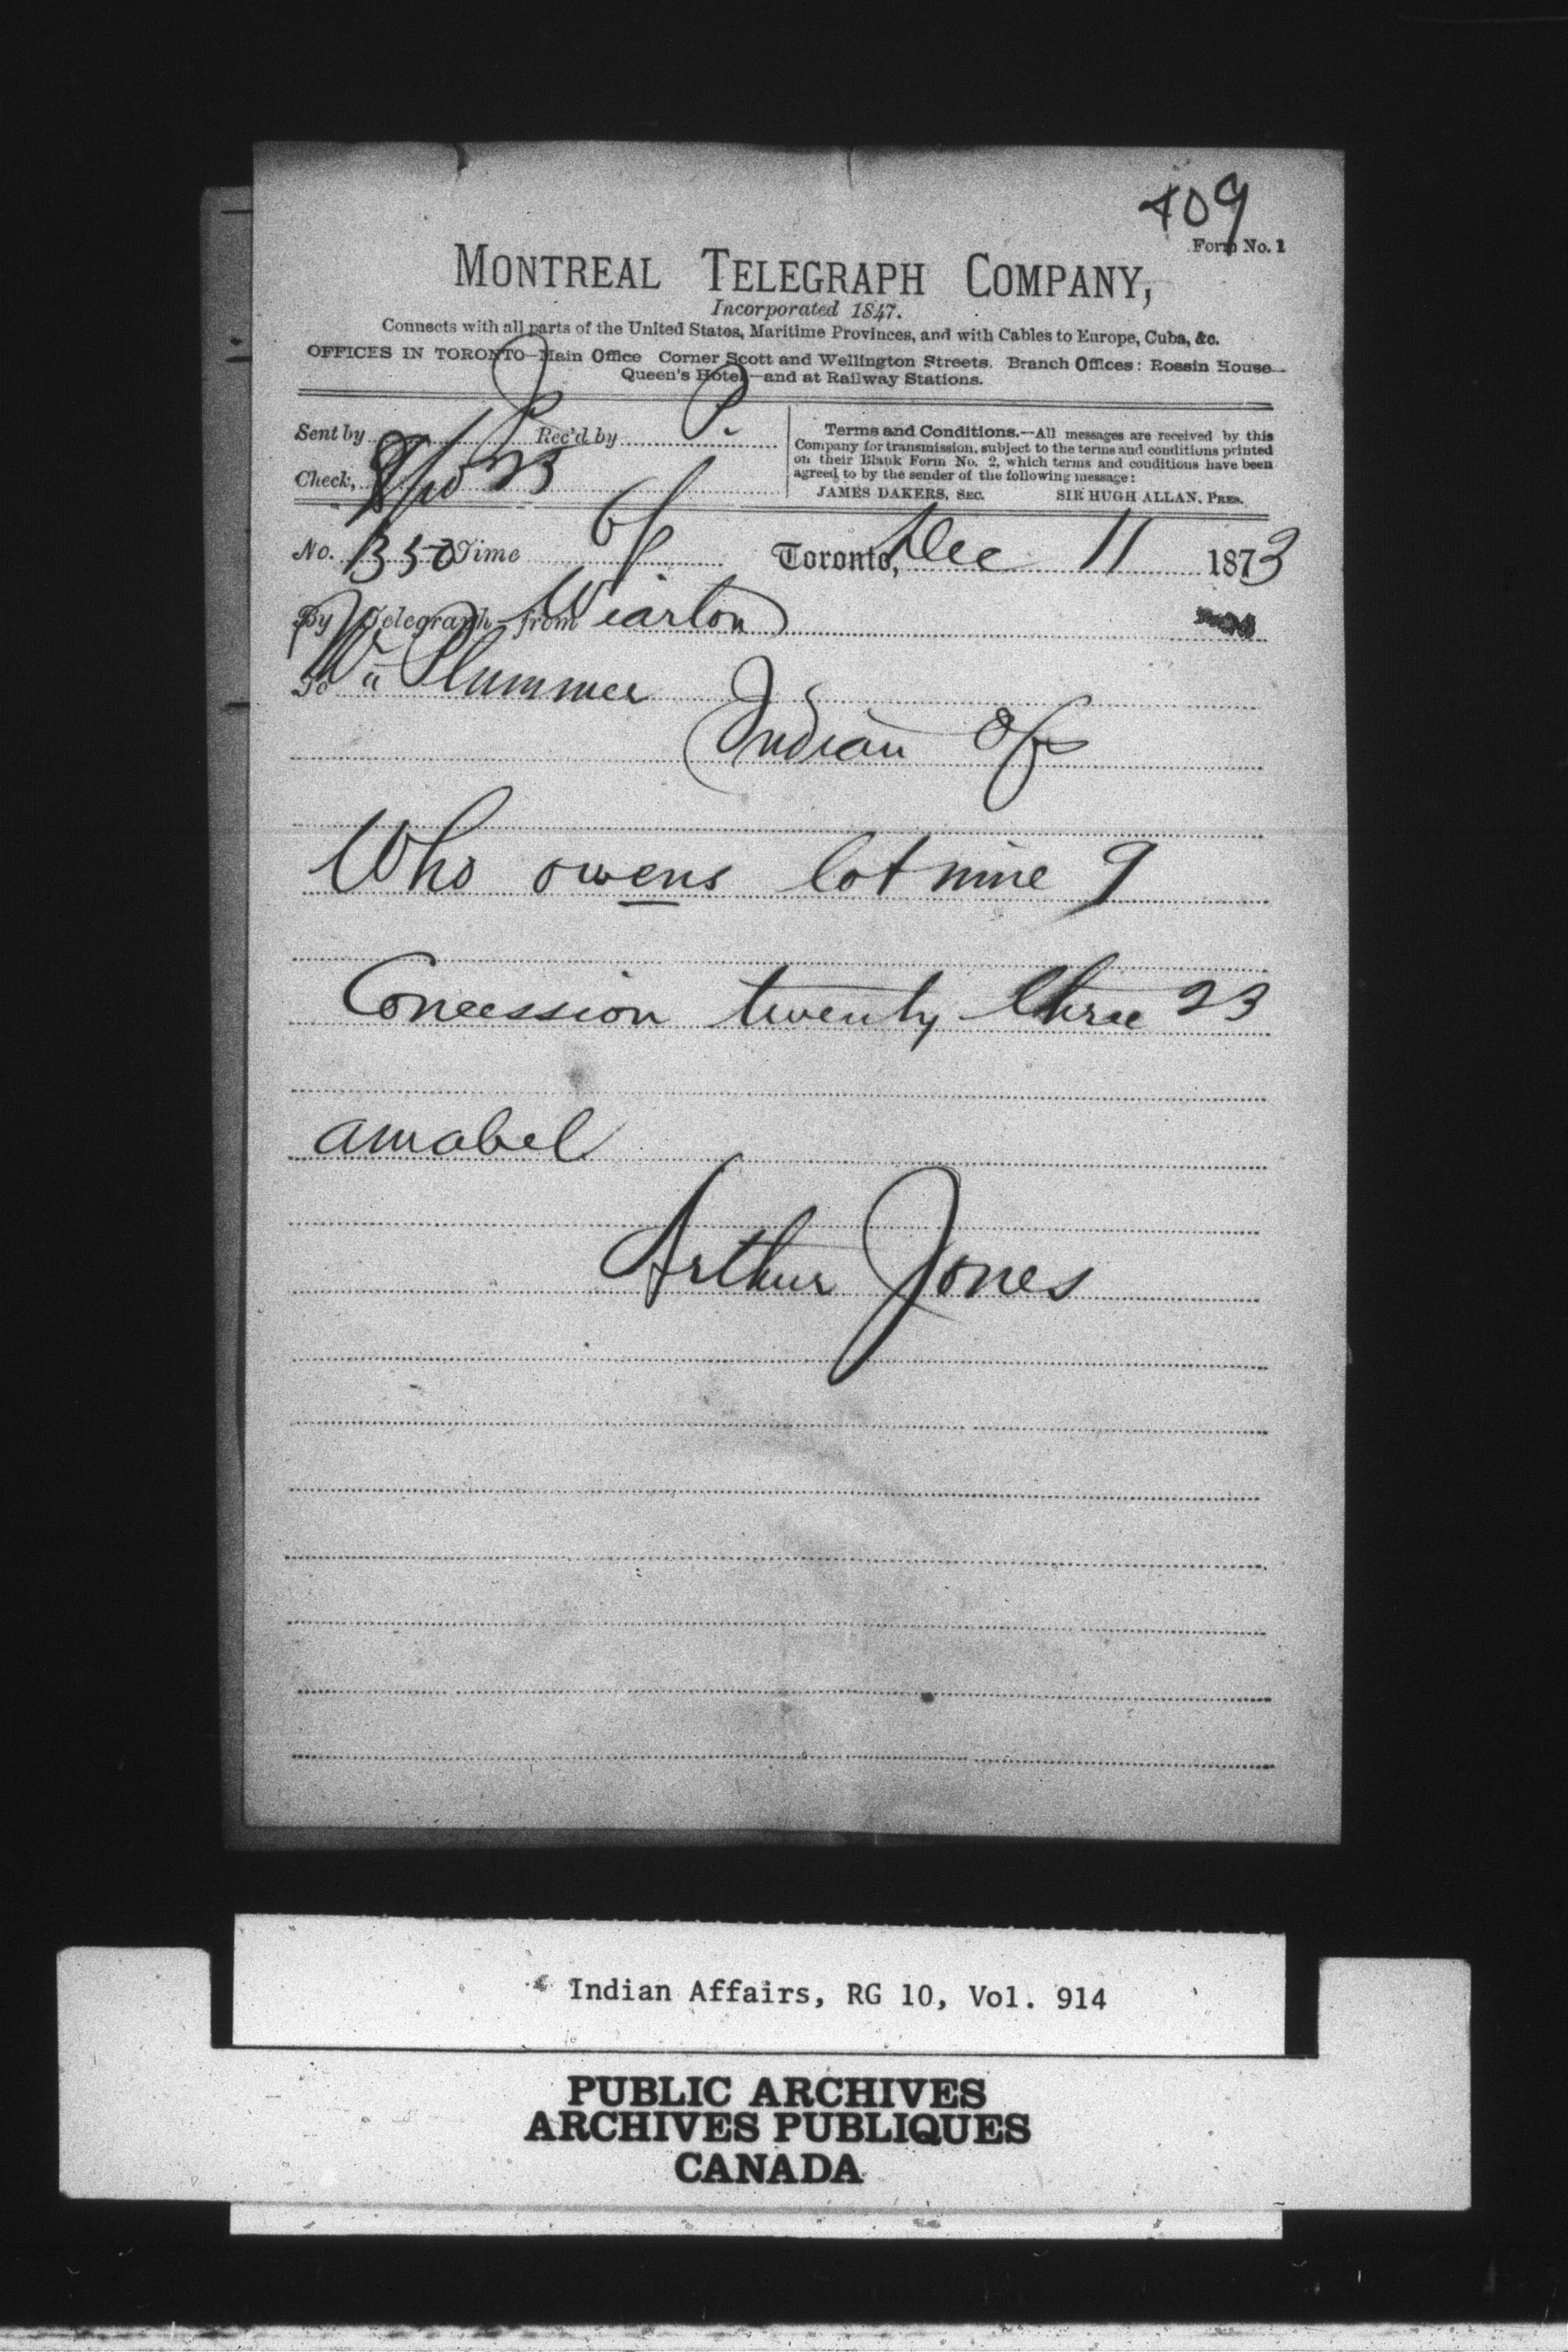 409
Form No. 1
MONTREAL TELEGRAPH COMPANY,
Incorporated 1847.
Connects with all parts of the United States, Maritime Provinces, and with Cables to Europe, Cuba, &c.
OFFICES IN TORONTO—Main Office Corner Scott and Wellington Streets. Branch Offices: Rossin House—
Queen's Hotel—and at Railway Stations.
Sent by Rec'd by P.
Check,
Terms and Conditions.—All messages are received by this
Company for transmission, subject to the terms and conditions printed
on their Blank Form No. 2, which terms and conditions have been
agreed to by the sender of the following message:
JAMES DAKERS, SEC. SIR HUGH ALLAN, PRES.
No. 350 Time Toronto, Dec 11 1873
By Telegraph from Wiarton
To Wm Plummer
Indian Of
Who owens lot nine 9
Concession twenty three 23
amabel
Arthur Jones
Indian Affairs, RG 10, Vol. 914
PUBLIC ARCHIVES
ARCHIVES PUBLIQUES
CANADA